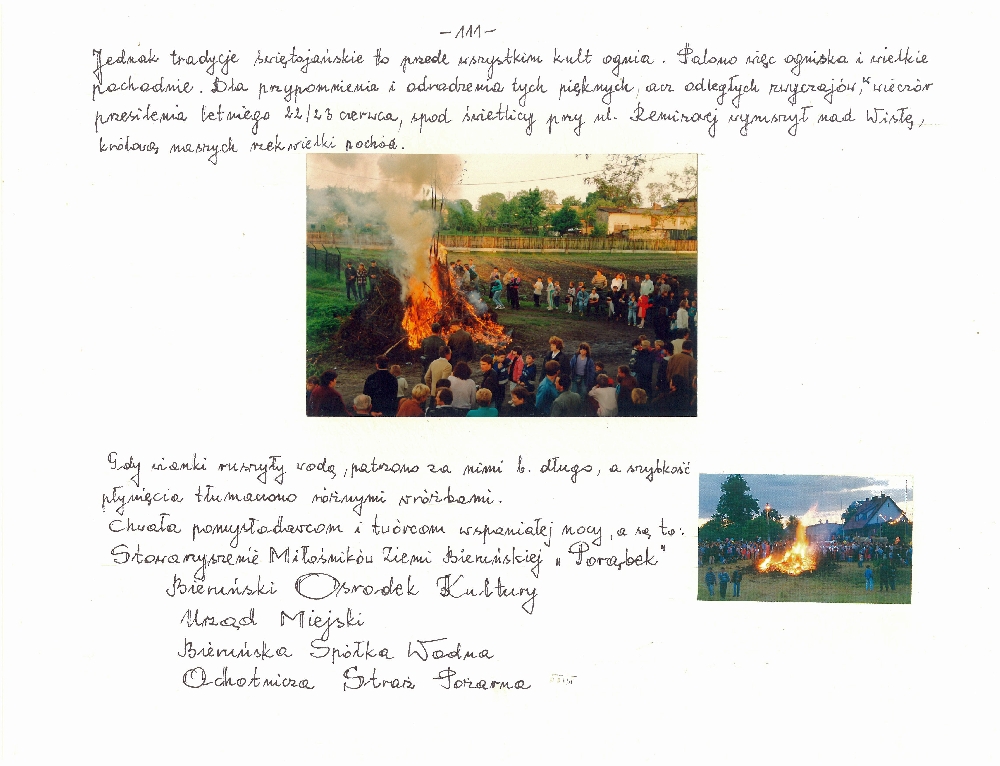 -111-
Jednak tradycje świętojańskie to przede wszystkim kult ognia. Palono więc ogniska i wielkie
pochodnie. Dla przypomnienia i odrodzenia tych pięknych, acz odległych zwyczajów, "wieczór
przesilenia letniego 22/23 czerwca, spod świetlicy przy ul. Remizowej wyruszył nad Wisłę,
królową naszych rzek wielki pochód.
Gdy wianki ruszyły wodą, patrzono za nimi b. długo, a szybkość
płynięcia tłumaczono różnymi wróżbami.
Chwała pomysłodawcom i twórcom wspaniałej nocy, a są to:
Stowarzyszenie Miłośników Ziemi Bieruńskiej "Porąbek"
Bieruński Ośrodek Kultury
Urząd Miejski
Bieruńska Spółka Wodna
Ochotnicza Straż Pożarna